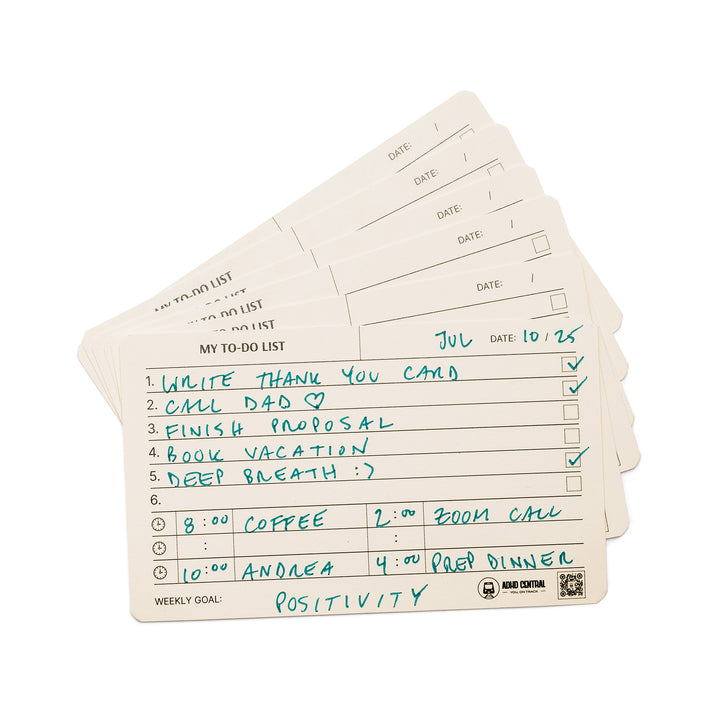 DATE: /
DATE: /
DATE: /
DATE: /
DATE: /
MY TO-DO LIST
MY TO-DO LIST
MY TO-DO LIST
MY TO-DO LIST JUL DATE: 10 / 25
1. WRITE THANK YOU CARD
2. CALL DAD ♡
3. FINISH PROPOSAL
4. BOOK VACATION
5. DEEP BREATH :)
6.
8:00 COFFEE 2:00 ZOOM CALL
: :
10:00 ANDREA 4:00 PREP DINNER
WEEKLY GOAL: POSITIVITY
ADHD CENTRAL
YOU ON TRACK